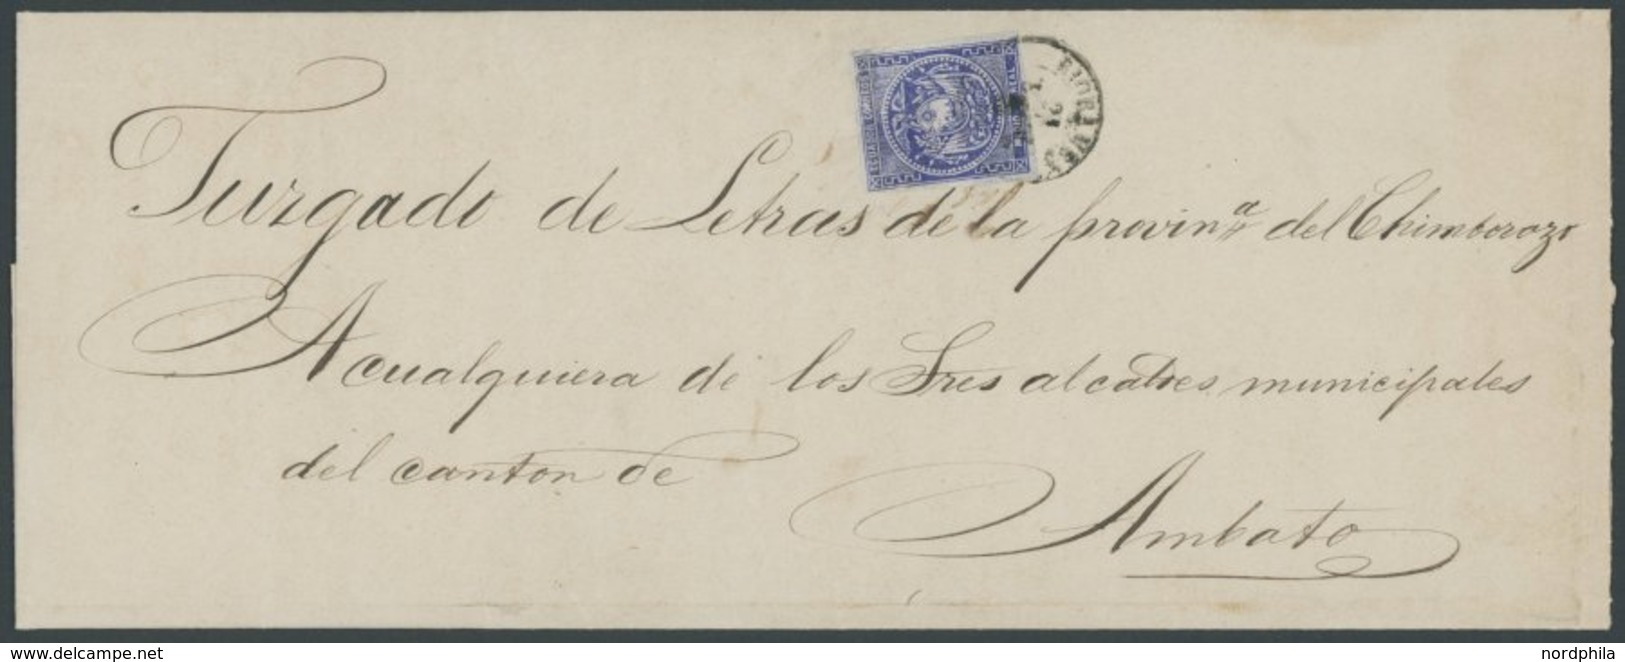 ECUADOR CORREOS
RIOBAMBA
21
Juzgado de Letras de la provinᵃ del Chimborazo
A cualquiera de los Sres alcaldes municipales
del canton de
Ambato
www.delcampe.net
nordphila